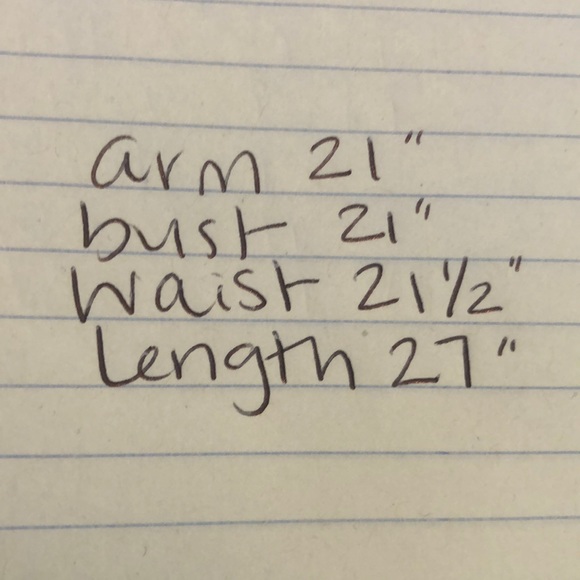 arm 21"
bust 21"
waist 21 1/2"
length 27"